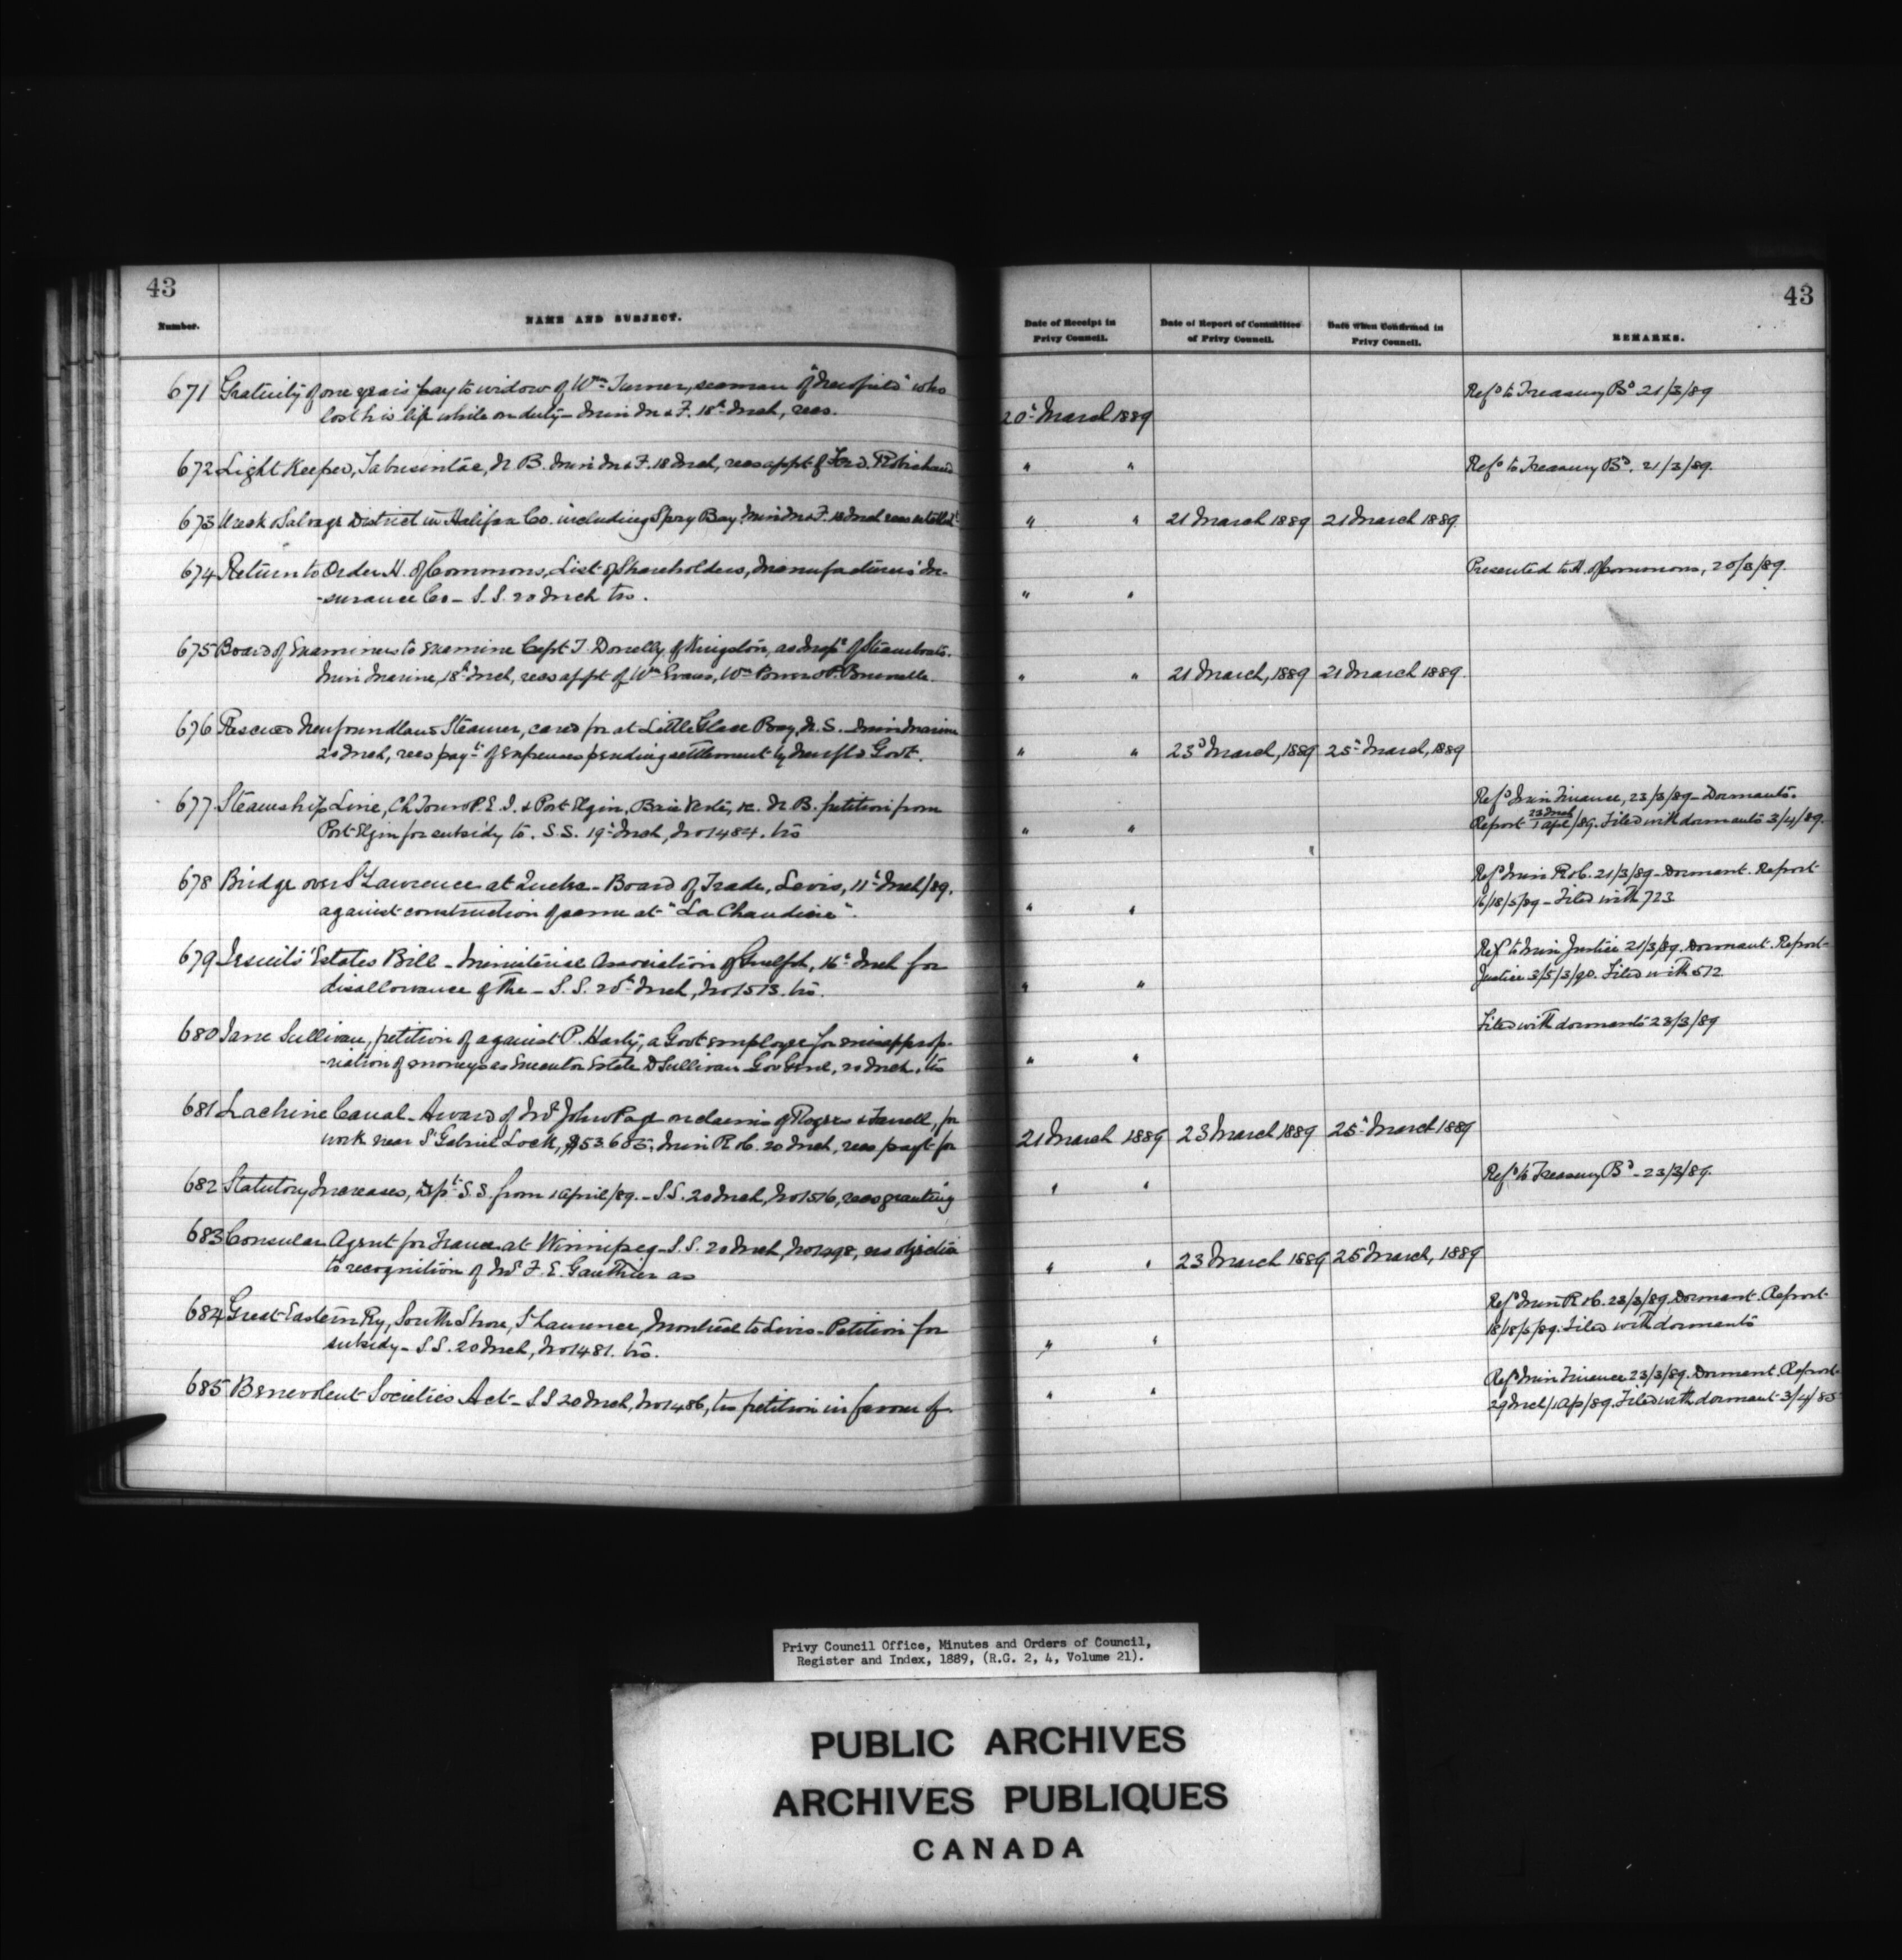 43
43
Number.
NAME AND SUBJECT.
Date of Receipt in Privy Council.
Date of Report of Committee of Privy Council.
Date when Confirmed in Privy Council.
REMARKS.
671 Gratuity of one year's pay to widow of Wm Turner, seaman of "Newfield" who
lost his life while on duty - Min M & F. 18th Mch, recs.
20th March 1889
Refd to Treasury Bd 21/3/89
672 Light Keeper, Tabusintac, N B. Min M & F. 18 Mch, recs appt of Ferd. Robichaud
" "
Refd to Treasury Bd. 21/3/89.
673 Wreck & Salvage District in Halifax Co. including Spry Bay. Min M & F. 18 Mch recs
" " 21 March 1889 21 March 1889
674 Return to Order H. of Commons, List of Shareholders, Manufacturers' In-
-surance Co - S.S. 20 Mch trs.
" "
Presented to H. of Commons, 20/3/89.
675 Board of Examiners to examine Capt T. Donnelly, of Kingston, as Inspr of Steamboats.
Min Marine, 18th Mch, recs appt of Wm Evans, Wm Brunelle
" " 21 March, 1889 21 March 1889.
676 Rescued Newfoundland Steamer, cared for at Little Glace Bay, N.S. - Min Marine
20 Mch, recs payt of expenses pending settlement by Newfld Govt.
" " 23d March, 1889 25th March, 1889
677 Steamship Line, Ch Town P.E.I. & Port Elgin, Baie Verte, &c. N B. petition from
Port Elgin for subsidy to. S.S. 19th Mch, No 1484. trs
" "
Refd Min Finance, 23/3/89 - Dormants.
Report 23 Mch/1 Apl/89. Filed with dormants 3/4/89.
678 Bridge over St Lawrence at Quebec - Board of Trade, Levis, 11th Mch/89.
against construction of same at "La Chaudiere".
" "
Refd Min R & C. 21/3/89 - Dormant. Report
16/18/5/89 - Filed with 723
679 Jesuits' Estates Bill - Ministerial Association of Guelph, 16th Mch for
disallowance of the - S.S. 20th Mch, No 1513. trs.
" "
Ref to Min Justice 21/3/89. Dormant. Report
Justice 3/5/3/90. Filed with 512
680 Jane Sullivan, petition of against P. Harty, a Govt employee for misapprop-
-riation of moneys as Executor Estate D Sullivan Gov Genl, 20 Mch, trs
" "
Filed with dormants 23/3/89
681 Lachine Canal - Award of Mr John Page on claims of Rogers & Farrell, for
work near St Gabriel Lock, Min R & C. 20 Mch, recs payt for
21 March 1889 23 March 1889 25th March 1889
682 Statutory Increases, Dept S.S. from 1 April/89. - S.S. 20 Mch, No 1516, recs granting
" "
Refd to Treasury Bd - 23/3/89.
683 Consular Agent for France at Winnipeg - S.S. 20 Mch, No 1498, no objection
to recognition of Mr F. E. Gauthier as
" " 23 March 1889 25 March, 1889
684 Great Eastern Ry, South Shore, St Lawrence, Montreal to Levis - Petition for
subsidy - S.S. 20 Mch, No 1481. trs.
" "
Refd Min R & C. 23/3/89. Dormant. Report
18/18/5/89. Filed with dormants
685 Benevolent Societies Act - S.S 20 Mch, No 1486, trs petition in favour of
" "
Refd Min Finance 23/3/89. Dormant. Report
29 Mch/1 Ap/89. Filed with dormant 3/4/89
Privy Council Office, Minutes and Orders of Council,
Register and Index, 1889, (R.G. 2, 4, Volume 21).
PUBLIC ARCHIVES
ARCHIVES PUBLIQUES
CANADA